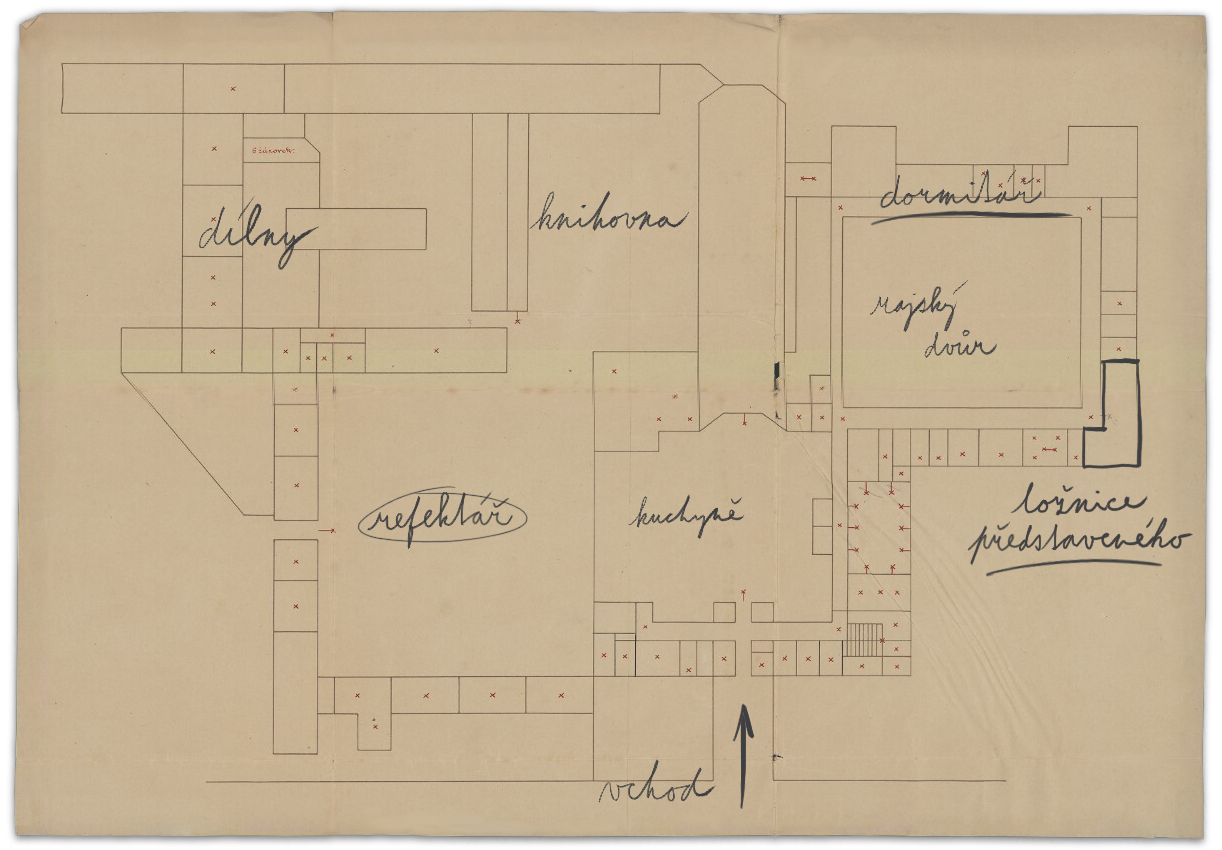 dílny
knihovna
dormitář
rajský
dvůr
refektář
kuchyně
ložnice
představeného
vchod